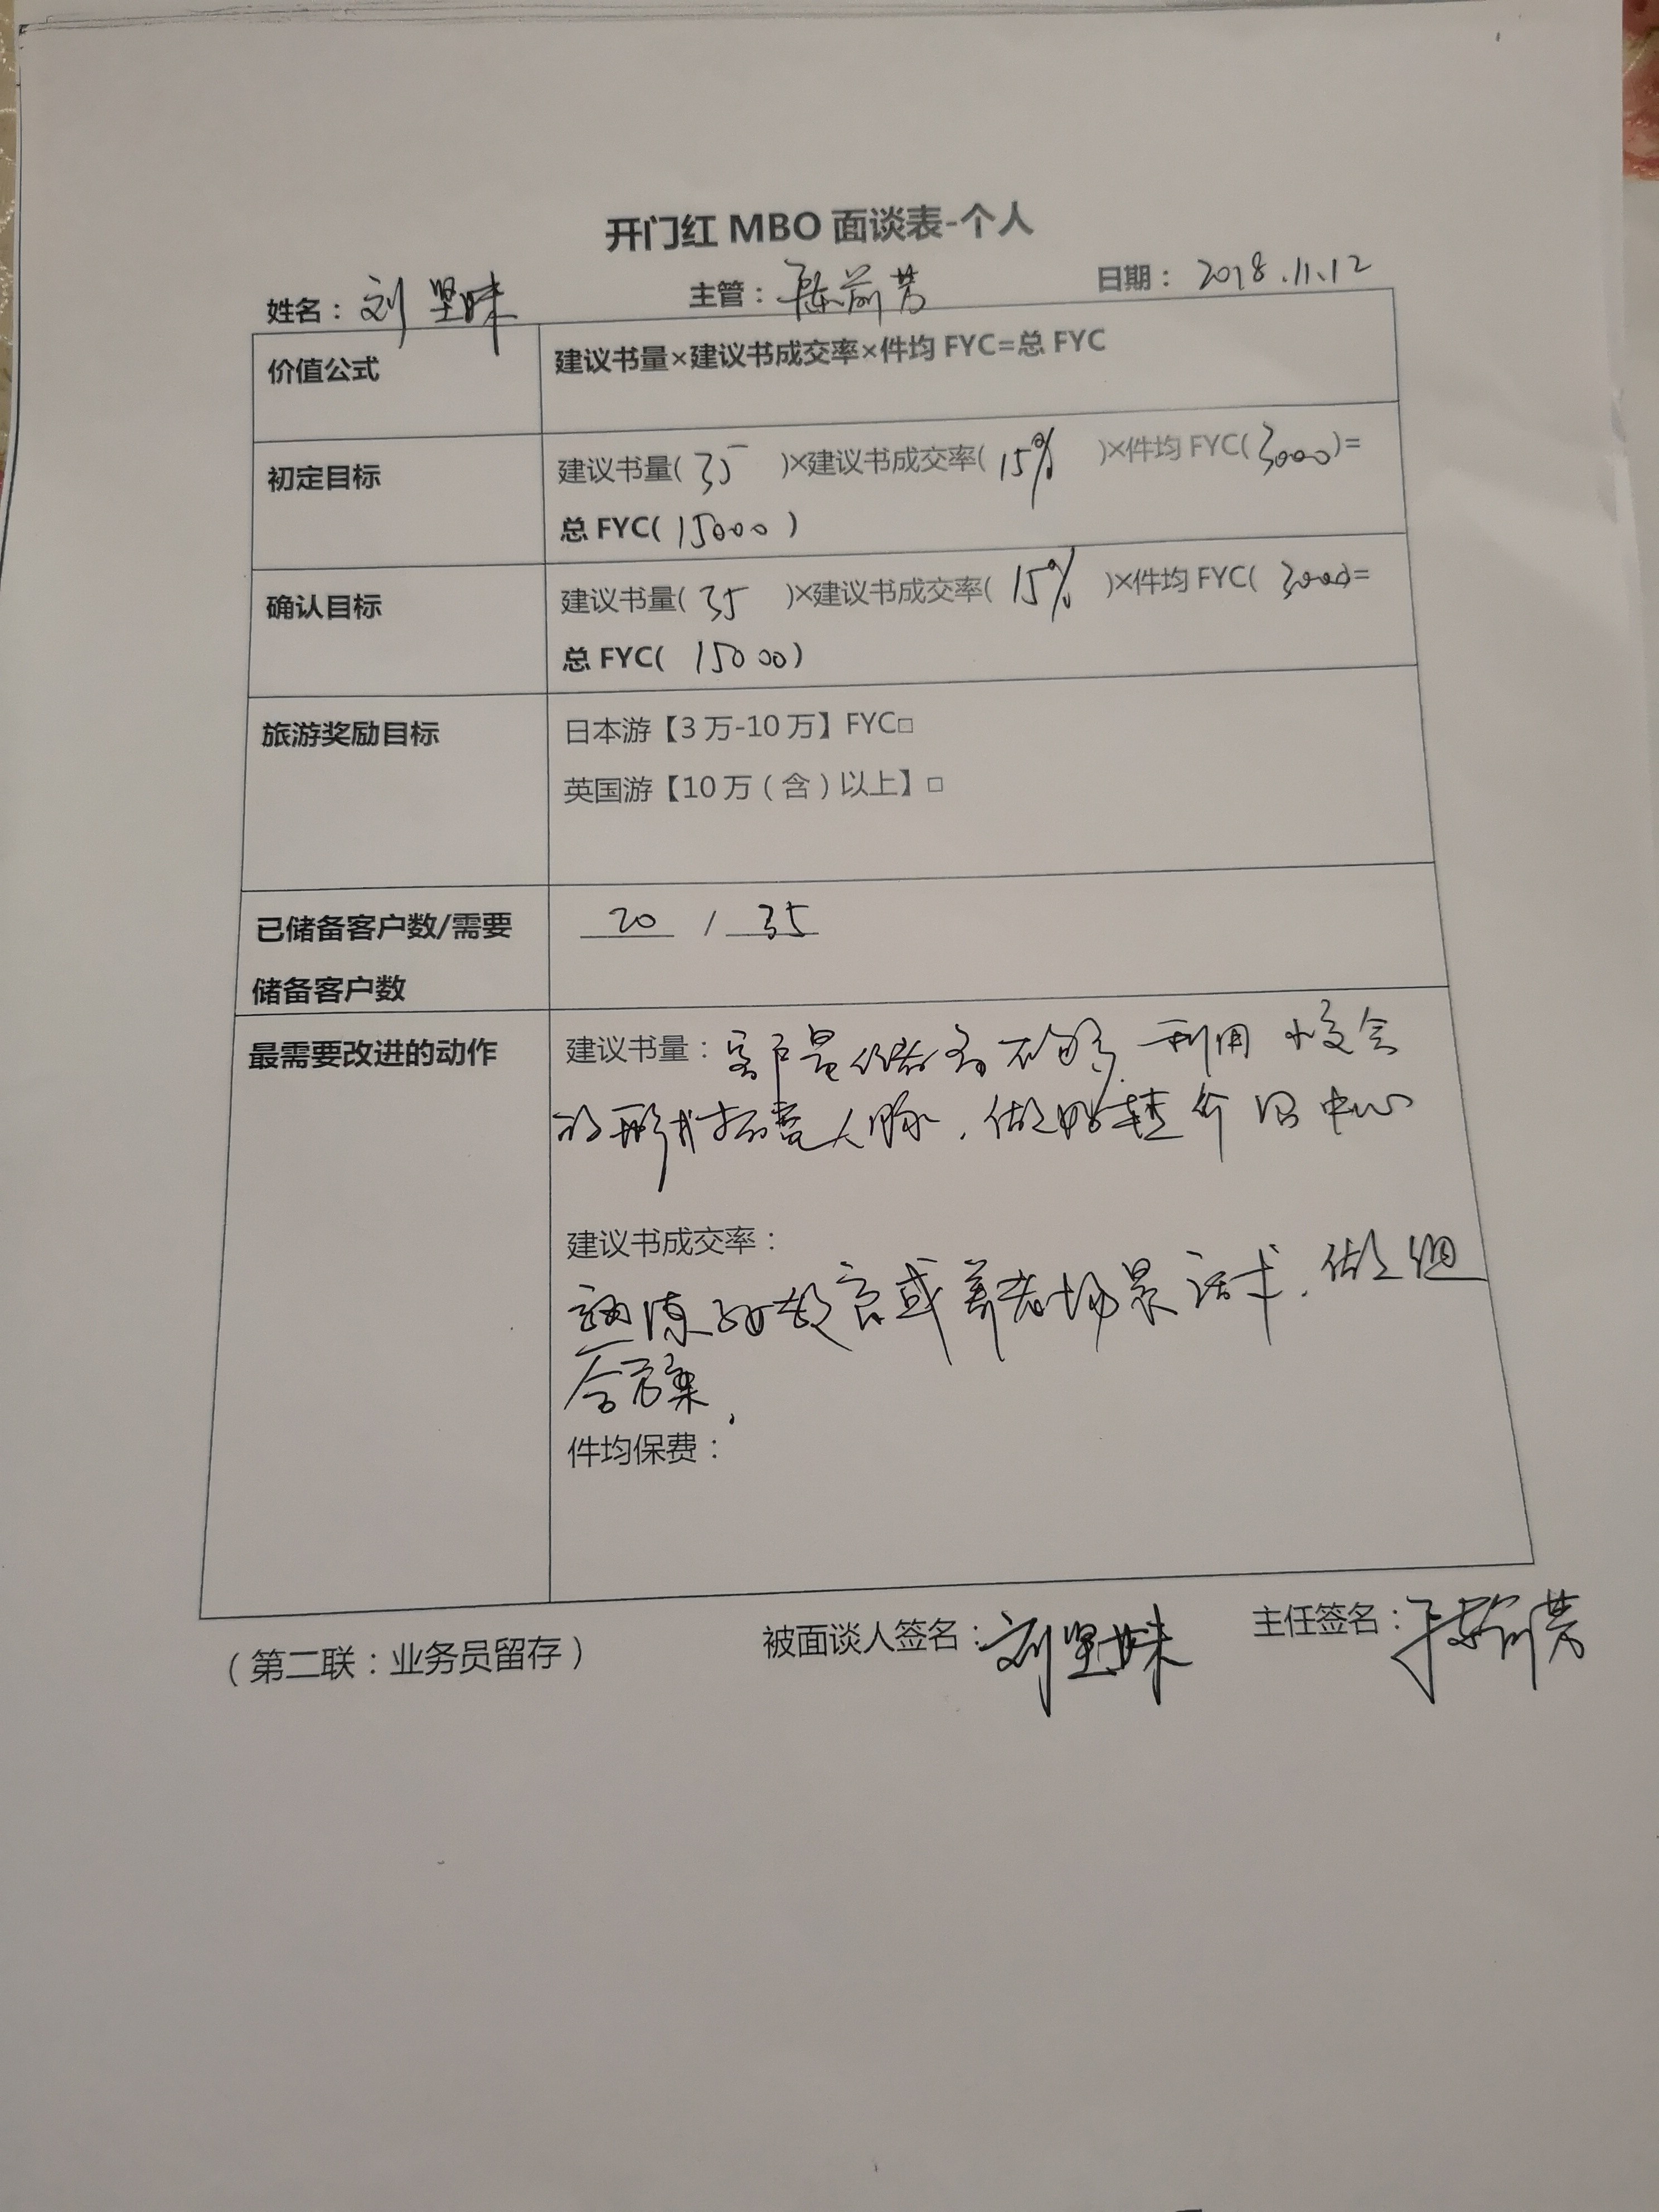 开门红 MBO 面谈表-个人
姓名：刘坚妹 主管：陈前芳 日期：2018.11.12
价值公式 建议书量×建议书成交率×件均 FYC=总 FYC
初定目标 建议书量( 35 )×建议书成交率( 15% )×件均 FYC( 3000 )=
总 FYC( 15000 )
确认目标 建议书量( 35 )×建议书成交率( 15% )×件均 FYC( 3000=
总 FYC( 15000 )
旅游奖励目标 日本游【3 万-10 万】FYC□
英国游【10 万（含）以上】□
已储备客户数/需要 20 / 35
储备客户数
最需要改进的动作 建议书量：客户量储备不够，利用小交会
的形式拓宽人脉，做好转介绍中心
建议书成交率：
熟练 教育或养老场景话术，做组
合方案，
件均保费：
（第二联：业务员留存） 被面谈人签名：刘坚妹 主任签名：陈前芳